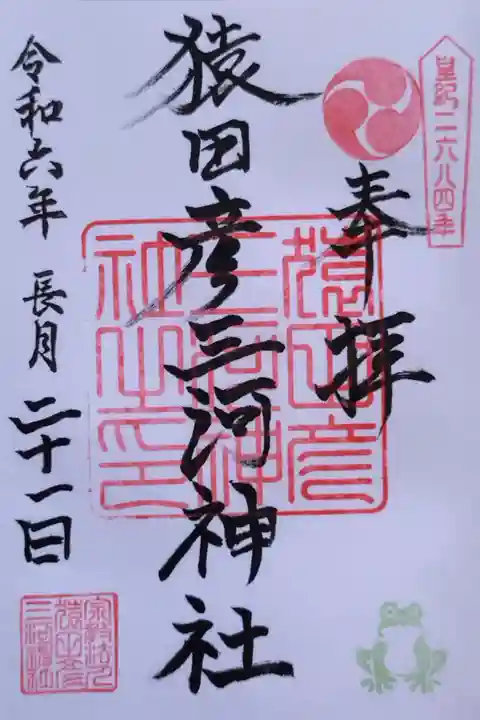 皇紀二六八四年
奉拝
猿田彦三河神社
猿田彦
三河神
社之印
令和六年 長月 二十一日